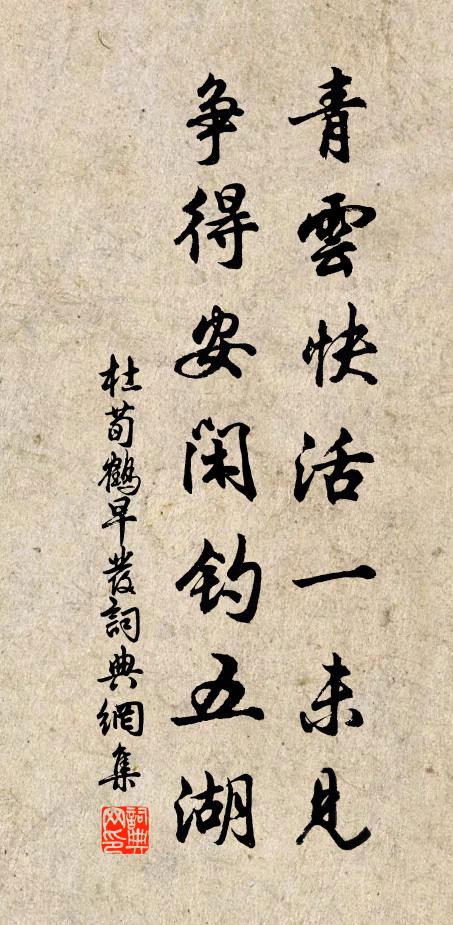 青雲快活一未見
爭得安閑釣五湖
杜荀鶴早發詞典網集
詞典网印